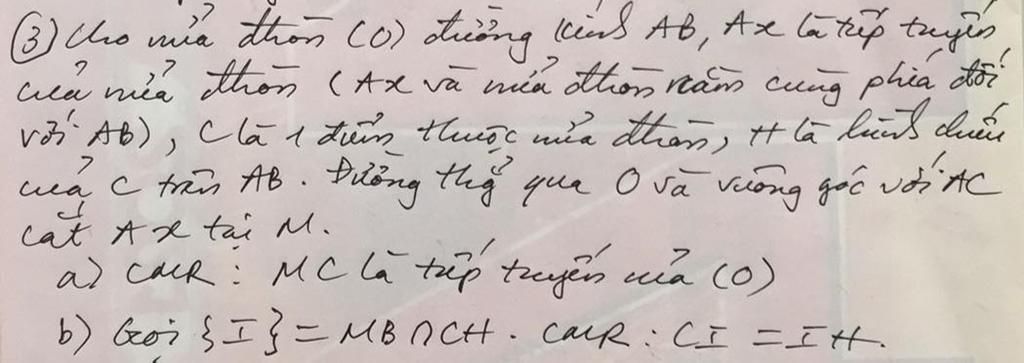 ③ Cho nửa đtròn (O) đường kính AB, Ax là tiếp tuyến
của nửa đtròn (Ax và nửa đtròn nằm cùng phía đối
với AB), C là 1 điểm thuộc nửa đtròn, H là hình chiếu
của C trên AB. Đường thg̉ qua O và vuông góc với AC
cắt Ax tại M.
a) CMR: MC là tiếp tuyến của (O)
b) Gọi {I} = MB ∩ CH. CMR: CI = IH.